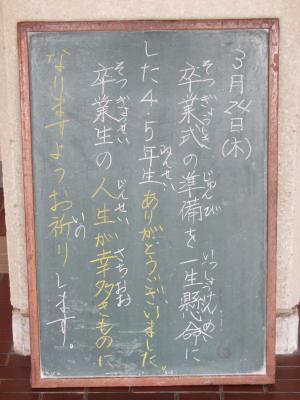 3月24日(木)
卒業式の準備を一生懸命に
そつぎょうしき じゅんび いっしょうけんめい
した4・5年生ありがとうございました。
ねんせい
卒業生の人生が幸多きものに
そつぎょうせい じんせい さちおお
なりますようお祈りします。
いの